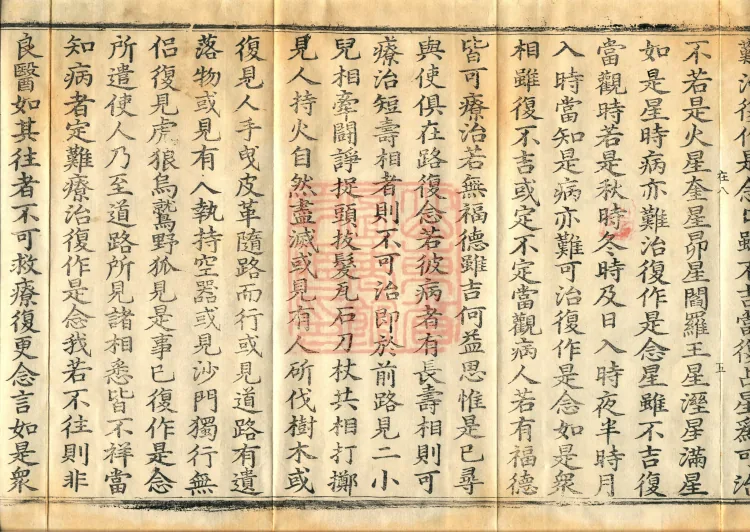 難治復作是雖不吉當復占星為可治
在八
五
不若是火星奎星昴星閻羅王星溼星滿星
如是星時病亦難治復作是念星雖不吉復
當觀時若是秋時冬時及日入時夜半時月
入時當知是病亦難可治復作是念如是衆
相雖復不吉或定不定當觀病人若有福德
皆可療治若無福德雖吉何益思惟是已尋
與使俱在路復念若彼病者有長壽相則可
療治短壽相者則不可治即於前路見二小
兒相牽鬪諍捉頭拔髮瓦石刀杖共相打擲
見人持火自然盡滅或見有人斫伐樹木或
復見人手曳皮革隨路而行或見道路有遺
落物或見有人執持空器或見沙門獨行無
侶復見虎狼烏鷲野狐見是事已復作是念
所遣使人乃至道路所見諸相悉皆不祥當
知病者定難療治復作是念我若不往則非
良醫如其往者不可救療復更念言如是衆